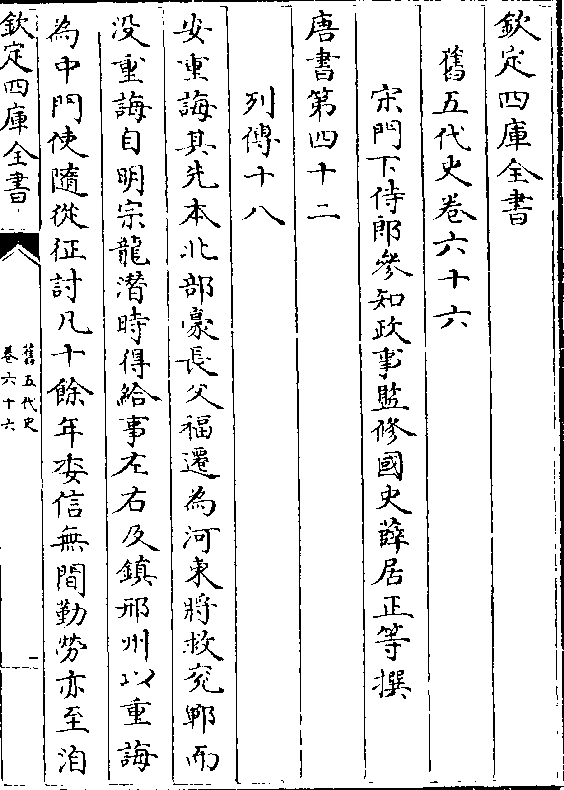 欽定四庫全書
舊五代史卷六十六
宋門下侍郎參知政事監修國史薛居正等撰
唐書第四十二
列傳十八
安重誨其先本北部豪長父福遷為河東將救兖鄆而
没重誨自明宗龍潛時得給事左右及鎮邢州以重誨
為中門使隨從征討凡十餘年委信無間勤勞亦至洎
欽定四庫全書
舊五代史
卷六十六
一